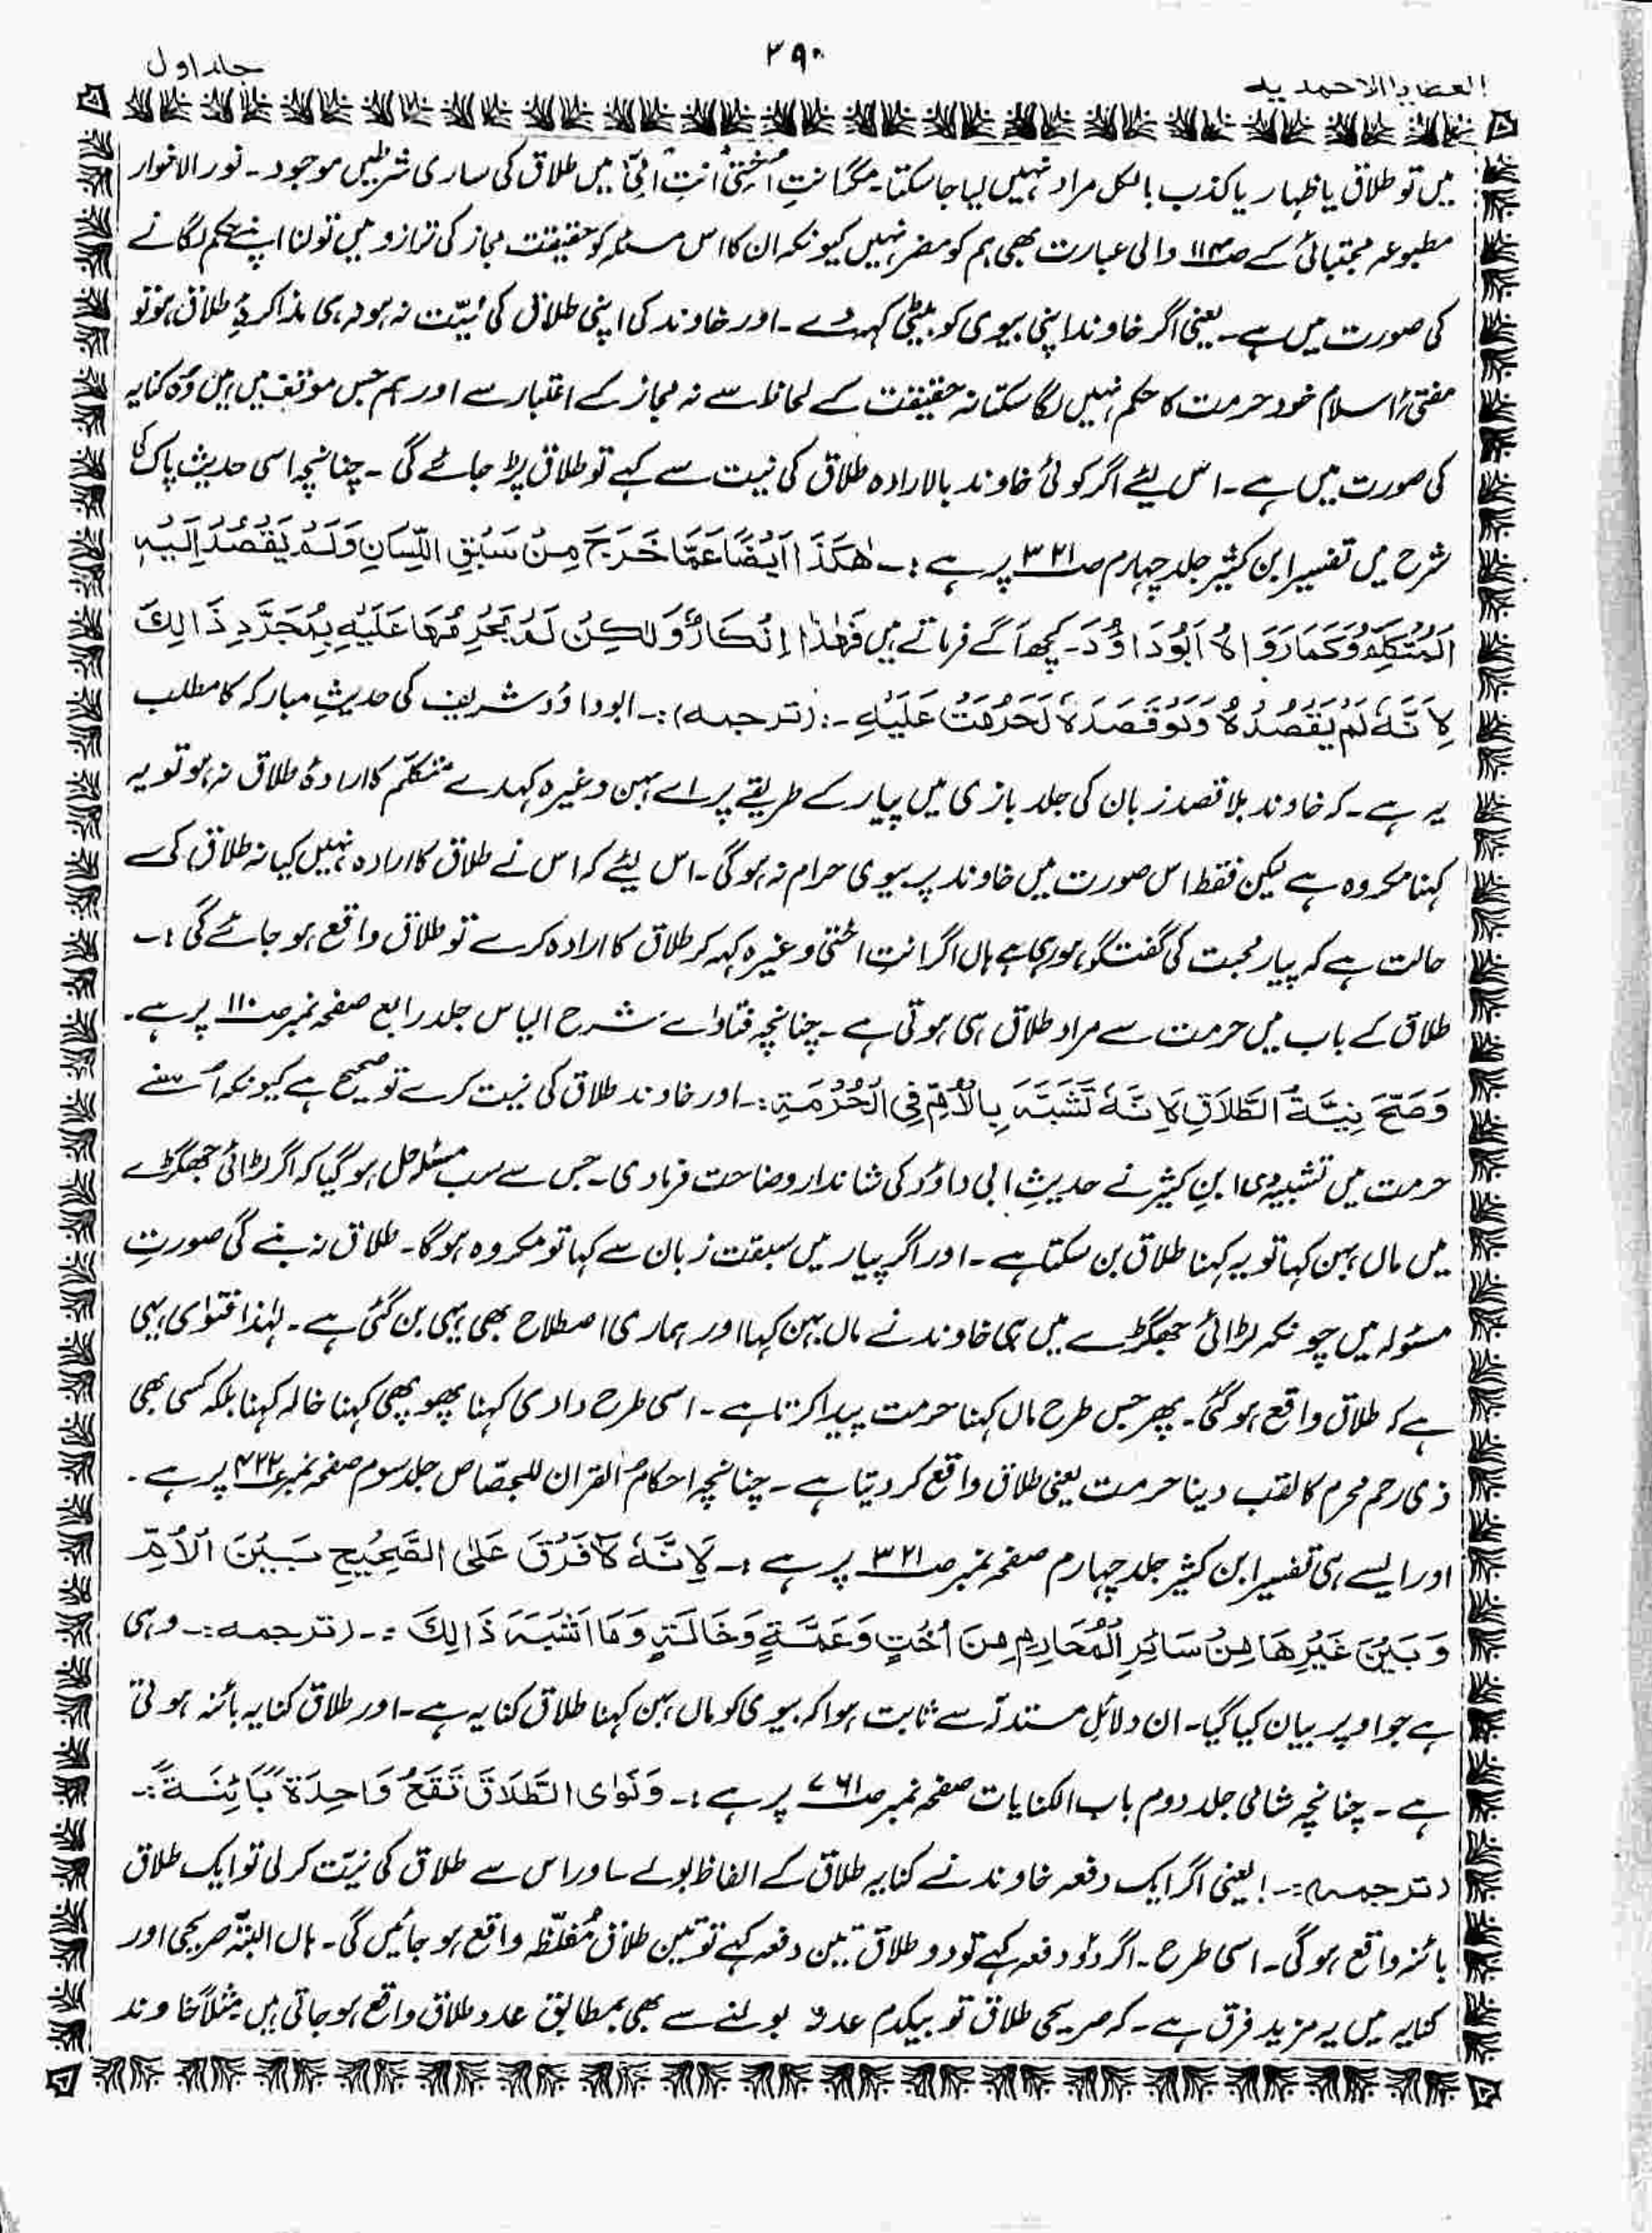 ۳۹۰
جلد اول
العطایا الاحمدیہ
میں تو طلاق یا ظہار یا کذب بالکل مراد نہیں لیا جا سکتا۔ مگر انتِ اُخْتِیْ اَنتِ اُمِّیْ میں طلاق کی ساری شرطیں موجود۔ نور الانوار
مطبوعہ مجتبائی کے صـ۱۱۴ والی عبارت بھی ہم کو مضر نہیں کیونکہ ان کا اس مسئلہ کو حقیقت مجاز کی ترازو میں تولنا اپنے حکم لگانے
کی صورت میں ہے۔ یعنی اگر خاوند اپنی بیوی کو بیٹی کہہ دے۔ اور خاوند کی اپنی طلاق کی نیّت نہ ہو نہ ہی مذاکرۂ طلاق ہو تو
مفتیٔ اسلام خود حرمت کا حکم نہیں لگا سکتا نہ حقیقت کے لحاظ سے نہ مجاز کے اعتبار سے اور ہم جس موقف میں ہیں وُہ کنایہ
کی صورت میں ہے۔ اس لئے اگر کوئی خاوند بالارادہ طلاق کی نیت سے کہے تو طلاق پڑ جائے گی۔ چنانچہ اسی حدیث پاک کی
شرح میں تفسیر ابن کثیر جلد چہارم صـ۳۲۱ پر ہے :۔ ھٰکَذَا اَیْضًا عَمَّا خَرَجَ مِنْ سَبْقِ اللِّسَانِ وَلَمْ یَقْصُدْ اِلَیْہِ
اَلْمُتَکَلِّمُ وَکَمَا رَوَاہُ اَبُوْدَاوُدَ۔ کچھ آگے فرماتے ہیں فَھٰذَا اِنْکَارٌ وَلٰکِنْ لَمْ یُحَرِّمْھَا عَلَیْہِ بِمُجَرَّدِ ذَالِکَ
لِاَنَّہٗ لَمْ یَقْصُدْہُ وَلَوْ قَصَدَہٗ لَحَرُمَتْ عَلَیْہِ ۔: (ترجمہ):۔ ابوداؤد شریف کی حدیثِ مبارکہ کا مطلب
یہ ہے۔ کہ خاوند بلا قصد زبان کی جلد بازی میں پیار کے طریقے پر اے بہن وغیرہ کہدے متکلّم کا ارادۂ طلاق نہ ہو تو یہ
کہنا مکروہ ہے لیکن فقط اس صورت میں خاوند پر بیوی حرام نہ ہوگی۔ اس لئے کہ اس نے طلاق کا ارادہ نہیں کیا نہ طلاق کی
حالت ہے کہ پیار محبت کی گفتگو ہو رہی ہے ہاں اگر انتِ اختی وغیرہ کہہ کر طلاق کا ارادہ کرے تو طلاق واقع ہو جائے گی :۔
طلاق کے باب میں حرمت سے مراد طلاق ہی ہوتی ہے۔ چنانچہ فتاوٰے شرح الیاس جلد رابع صفحہ نمبر صـ۱۱۰ پر ہے۔
وَصَحَّ نِیَّۃُ الطَّلَاقِ لِاَنَّہٗ تَشَبَّہَ بِالْاُمِّ فِی الْحُرْمَۃِ:۔ اور خاوند طلاق کی نیت کرے تو صحیح ہے کیونکہ اُس نے
حرمت میں تشبیہ دی ابنِ کثیر نے حدیثِ ابی داؤد کی شاندار وضاحت فرما دی۔ جس سے سب مسئلہ حل ہو گیا کہ اگر لڑائی جھگڑے
میں ماں بہن کہا تو یہ کہنا طلاق بن سکتا ہے۔ اور اگر پیار میں سبقت زبان سے کہا تو مکروہ ہوگا۔ طلاق نہ بنے گی صورتِ
مسئولہ میں چونکہ لڑائی جھگڑے میں ہی خاوند نے ماں بہن کہا اور ہماری اصطلاح بھی یہی بن گئی ہے۔ لہٰذا فتوٰی یہی
ہے کہ طلاق واقع ہو گئی۔ پھر جس طرح ماں کہنا حرمت پیدا کرتا ہے۔ اسی طرح دادی کہنا پھوپھی کہنا خالہ کہنا بلکہ کسی بھی
ذی رحم محرم کا لقب دینا حرمت یعنی طلاق واقع کر دیتا ہے۔ چنانچہ احکام القران للجصّاص جلد سوم صفحہ نمبر صـ۴۲۲ پر ہے۔
اور ایسے ہی تفسیر ابن کثیر جلد چہارم صفحہ نمبر صـ۳۲۱ پر ہے :۔ لِاَنَّہٗ لَا فَرْقَ عَلَی الصَّحِیْحِ بَیْنَ الْاُمِّ
وَبَیْنَ غَیْرِھَا مِنْ سَائِرِ الْمَحَارِمِ مِنْ اُخْتٍ وَعَمَّۃٍ وَخَالَۃٍ وَمَا اَشْبَہَ ذَالِکَ :۔ (ترجمہ:۔ وہی
ہے جو اوپر بیان کیا گیا۔ ان دلائلِ مستدلّہ سے ثابت ہوا کہ بیوی کو ماں بہن کہنا طلاق کنایہ ہے۔ اور طلاق کنایہ بائنہ ہوتی
ہے۔ چنانچہ شامی جلد دوم باب الکنایات صفحہ نمبر صـ۷۶۱ پر ہے :۔ وَنَوٰی الطَّلَاقَ تَقَعُ وَاحِدَۃً بَائِنَۃً:۔
(ترجمہ):۔ یعنی اگر ایک دفعہ خاوند نے کنایہ طلاق کے الفاظ بولے۔ اور اس سے طلاق کی نیّت کر لی تو ایک طلاق
بائنہ واقع ہوگی۔ اسی طرح۔ اگر دو دفعہ کہے تو دو طلاق تین دفعہ کہے تو تین طلاق مُغلّظہ واقع ہو جائیں گی۔ ہاں البتّہ صریحی اور
کنایہ میں یہ مزید فرق ہے۔ کہ صریحی طلاق تو بیکدم عدد بولنے سے بھی بمطابق عدد طلاق واقع ہو جاتی ہیں مثلاً خاوند